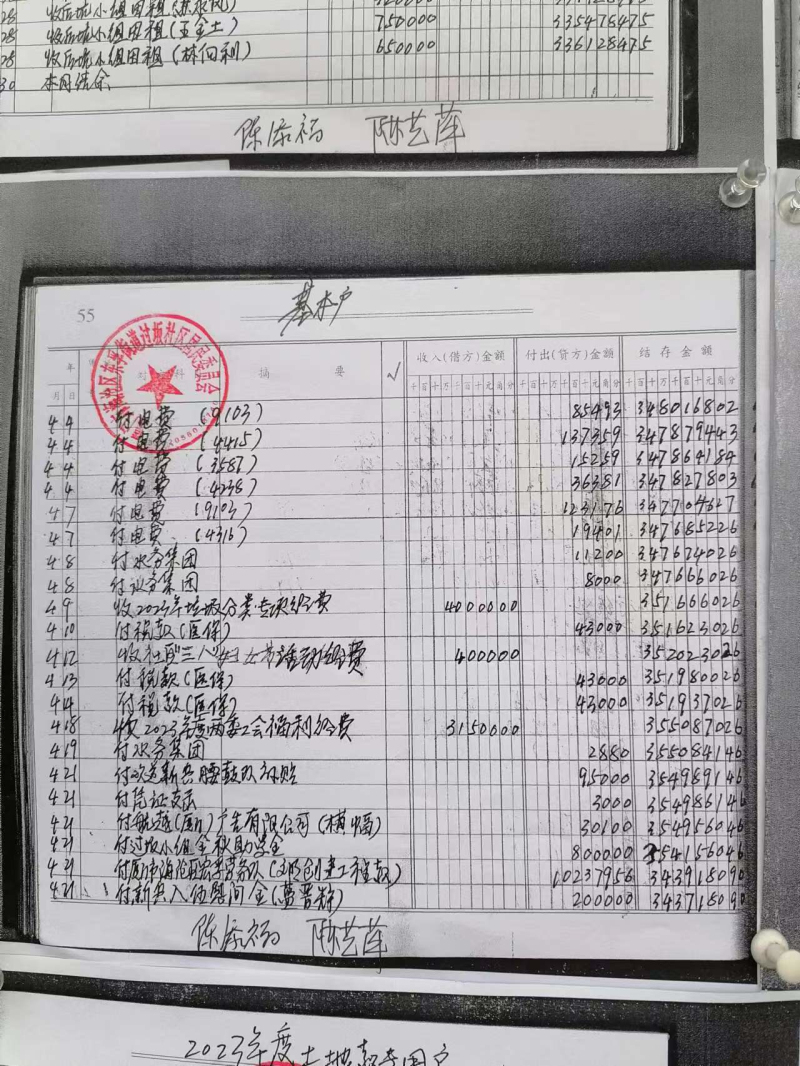 28 收后坑小组田租( 720000
28 收后坑小组田租(王金土) 750000 335478475
28 收后坑小组田租(林向利) 650000 336128475
30 本月结余
陈添福
55
基本户
年 月 日 摘 要 √ 收入(借方)金额 付出(贷方)金额 结存金额
街道过坂社区居民委员会
4 4 付电费 (9103) 85493 348016802
4 4 付电费 (4415) 137359 347879443
4 4 付电费 (3587) 15259 347864184
4 4 付电费 (4238) 36381 347827803
4 7 付电费 (9103) 123176 347704627
4 7 付电费 (4316) 19401 347685226
4 8 付水务集团 11200 347674026
4 8 付水务集团 8000 347666026
4 9 收2023年垃圾分类专项经费 4000000 351666026
4 10 付税款(医保) 43000 351623026
4 12 收社区"三八"妇女节活动经费 400000 352023026
4 13 付税款(医保) 43000 351980026
4 14 付税款(医保) 43000 351937026
4 18 收2023年度两委工会福利经费 3150000 355087026
4 19 付水务集团 2880 355084146
4 21 付欢送新兵腰鼓队补贴 95000 354989146
4 21 付凭证支出 3000 354986146
4 21 付航越(厦门)广告有限公司(横幅) 30100 354956046
4 21 付过坂小组金秋助学金 800000 354156046
4 21 付厦门市海沧区 劳务队 10237956 343918090
4 21 付新兵入伍慰问金 200000 343718090
陈添福
2023年度土地款专用户